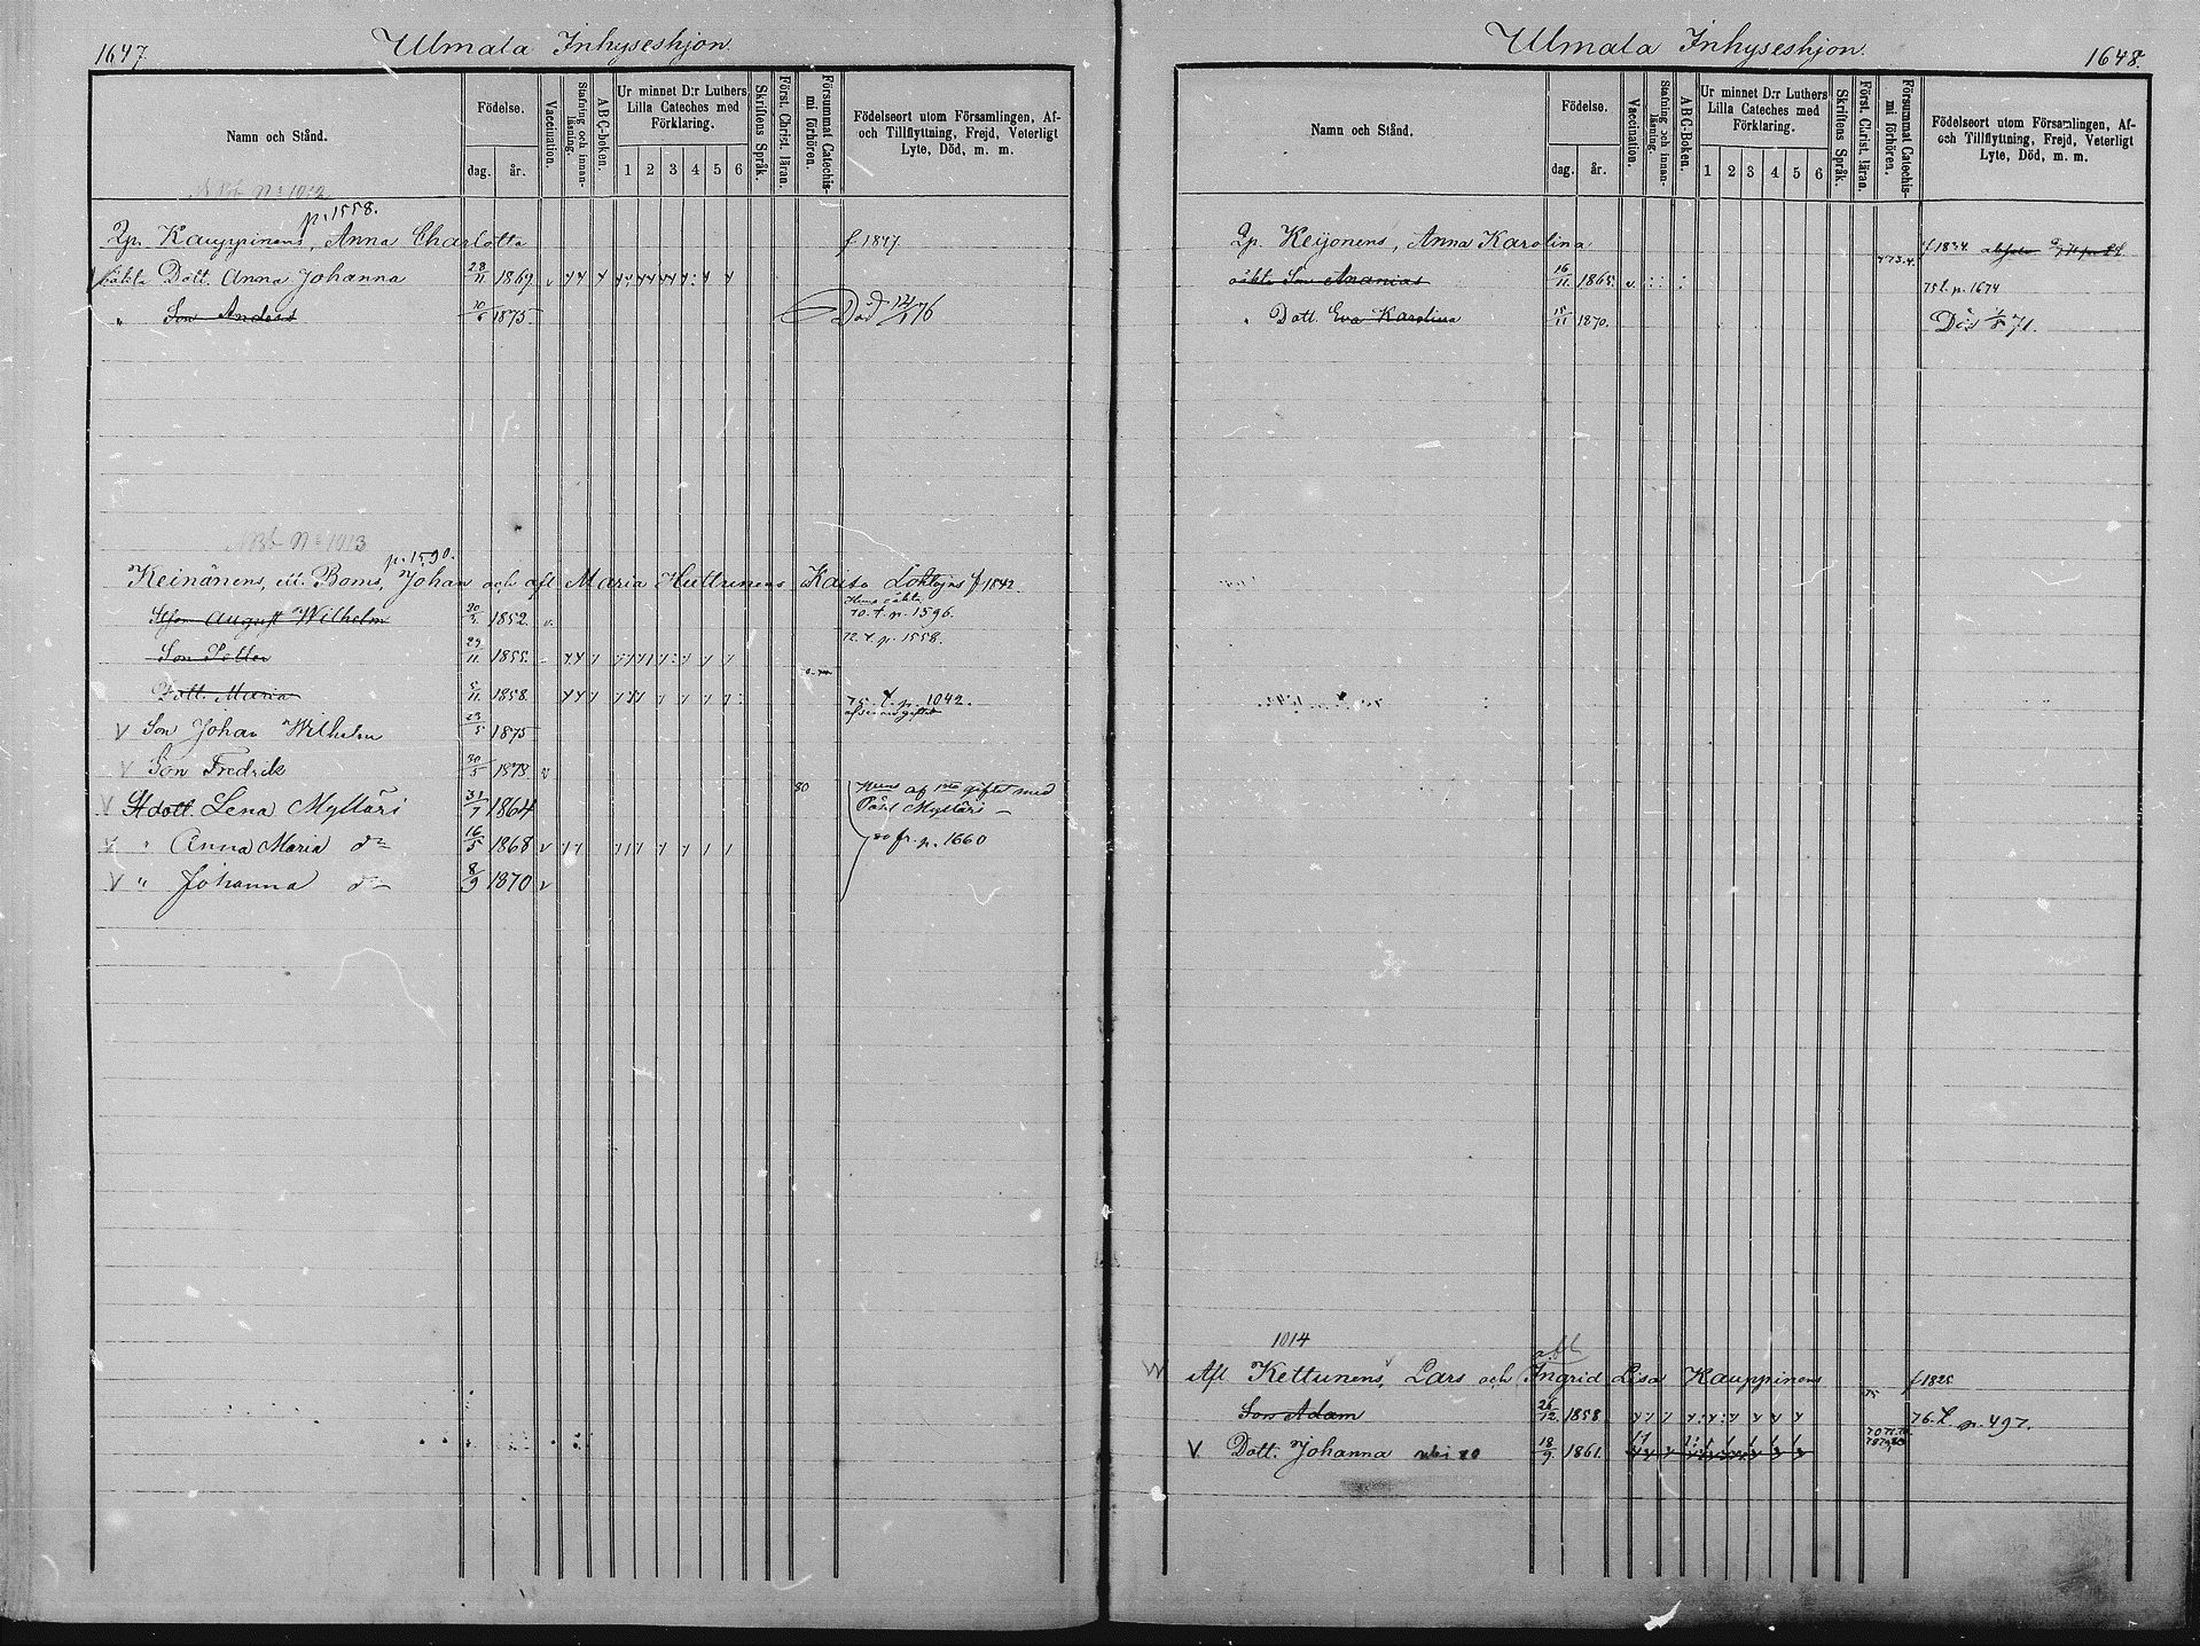 1647.
Ulmala Inhyseshjon.
Namn och Stånd.
Födelse.
dag.
år.
Vaccination.
Stafning och innan-läsning.
ABC-boken.
Ur minnet D:r Luthers Lilla Cateches med Förklaring.
1 2 3 4 5 6
Skriftens Språk.
Först. Christ. läran.
Försummat Catechis-mi förhören.
Födelseort utom Församlingen, Af- och Tillflyttning, Frejd, Veterligt Lyte, Död, m. m.
p. 1558.
Qp. Kauppinens, Anna Charlotta f 1847
oäkta Dott. Anna Johanna 28/11 1869. v
" Son Anders 1875. Död 12/1 76
Nbb No 1013
p. 1590.
Keinänens, Johan och afl Maria Huttunens Kaisa f 1842.
Son August Wilhelm 1852. v. 70. t. p. 1596.
72. t. p. 1558.
Son 29/11 1855.
Dott. Maria 5/11 1858. 75. t. p. 1042.
V Son Johan Wilhelm 23/5 1875
V Son Fredrik 30/5 1878. v
V St dott. Lena Mylläri 31/7 1864 80 af 1sta giftet med Mylläri
V " Anna Maria do 16/5 1868 v 80 fr. p. 1660
V " Johanna do 8/9 1870 v
Ulmala Inhyseshjon.
1648.
Namn och Stånd.
Födelse.
dag.
år.
Vaccination.
Stafning och innan-läsning.
ABC-Boken.
Ur minnet D:r Luthers Lilla Cateches med Förklaring.
1 2 3 4 5 6
Skriftens Språk.
Först. Christ. läran.
Försummat Catechis-mi förhören.
Födelseort utom Församlingen, Af- och Tillflyttning, Frejd, Veterligt Lyte, Död, m. m.
Qp. Keijonens, Anna Karolina f 1834.
oäkta Son Ananias 16/11 1865. v. 75 t. p. 1674
" Dott. Eva Karolina 15/11 1870. Död 71.
1014
Afl Kettunens, Lars och Ingrid Lisa Kauppinens 75 f 1825
Son Adam 26/12. 1858 76. t. p. 497.
V Dott. Johanna 18/9. 1861.